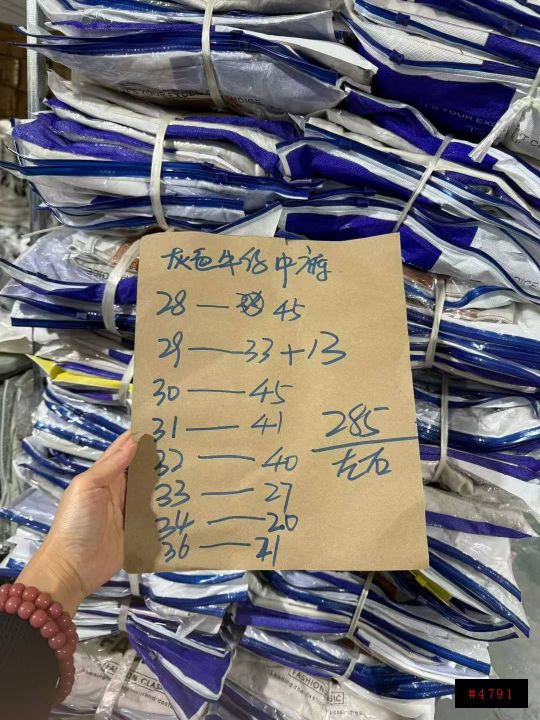 灰色牛仔中裤
28 — 45
29 — 33+13
30 — 45
31 — 41
32 — 40
33 — 27
34 — 20
36 — 21
285
左右
#4791